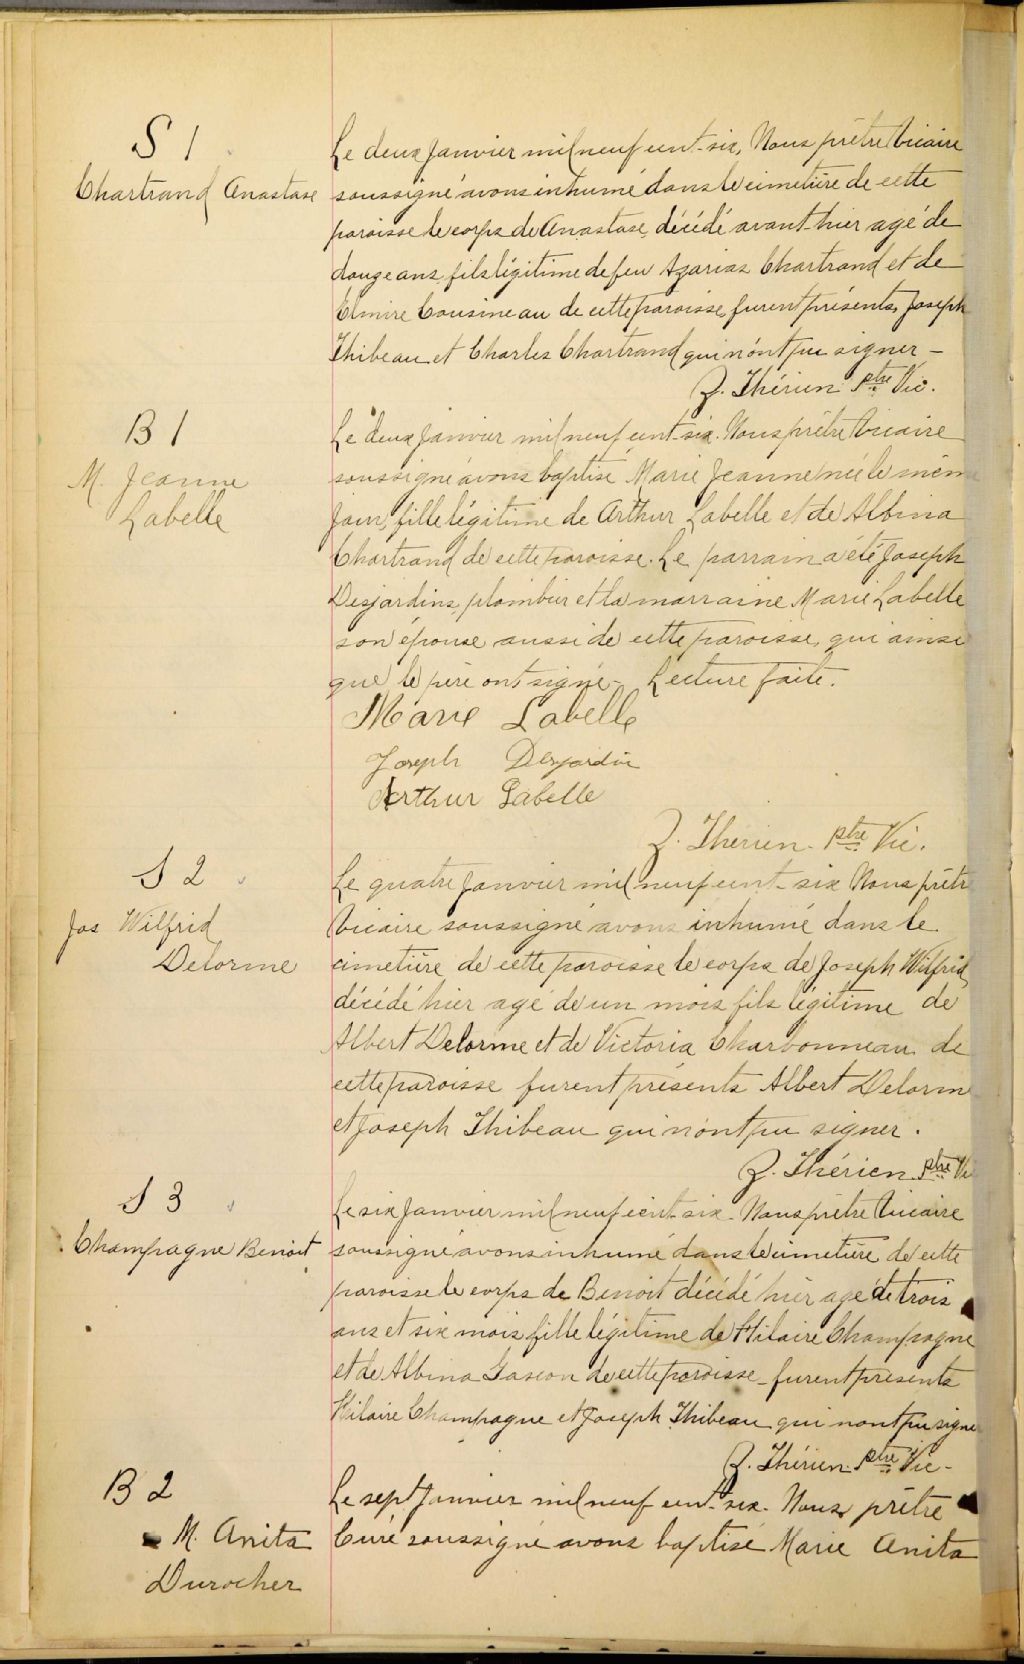 S 1
Chartrand Anastase
Le deux Janvier mil neuf cent-six, Nous prêtre Vicaire
soussigné avons inhumé dans le cimetière de cette
paroisse le corps de Anastase, décédé avant-hier agé de
douze ans, fils légitime de feu Azarias Chartrand et de
Elmire Cousineau de cette paroisse, furent présents, Joseph
Thibeau et Charles Chartrand qui n'ont pu signer -
Z. Thérien Ptre Vic.
B 1
M. Jeanne
Labelle
Le deux Janvier mil neuf cent-six. Nous prêtre Vicaire
soussigné avons baptisé Marie Jeanne née le même
jour, fille légitime de Arthur Labelle et de Albina
Chartrand de cette paroisse. Le parrain a été Joseph
Desjardins, plombier et la marraine Marie Labelle
son épouse aussi de cette paroisse, qui ainsi
que le père ont signé - Lecture faite.
Marie Labelle
Joseph Desjardin
Arthur Labelle
Z. Therien. Ptre Vic.
S 2
Jos Wilfrid
Delorme
Le quatre Janvier mil neuf cent-six Nous prêtr
Vicaire soussigné avons inhumé dans le
cimetière de cette paroisse le corps de Joseph Wilfrid,
décédé hier agé de un mois fils légitime de
Albert Delorme et de Victoria Charbonneau de
cette paroisse furent présents Albert Delorm
et Joseph Thibeau qui n'ont pu signer.
Z. Thérien. Ptre Vi
S 3
Champagne Benoit
Le six Janvier mil neuf cent-six - Nous prêtre Vicaire
soussigné avons inhumé dans le cimetière de cette
paroisse le corps de Benoit décédé hier agé de trois
ans et six mois fille légitime de Hilaire Champagne
et de Albina Gascon de cette paroisse - furent presents
Hilaire Champagne et Joseph Thibeau qui n'ont pu signe
Z. Thérien. Ptre Vic -
B 2
M. Anita
Durocher
Le sept Janvier mil neuf cent-six. Nous prêtre
Curé soussigné avons baptisé Marie Anita